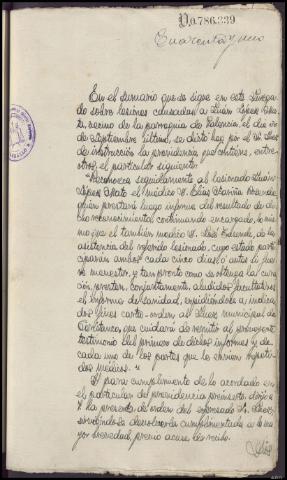 D0.786.839
Cuarenta y uno
En el sumario que se sigue en este Juzga-
do sobre lesiones causadas a Julián López
vecino de la parroquia de Valencia, el día
de Septiembre último, se dictó hoy por el Sr. Juez
de instrucción la providencia que contiene, entre
otros, el particular siguiente:
"Reconozca seguidamente al lesionado Julián
López el médico D. Elías
quien prestará luego informe del resultado de di-
cho reconocimiento continuando encargado, lo mis-
mo que el también médico D. de la
asistencia del referido lesionado, cuyo estado parti-
ciparán ambos cada cinco días o antes si fue-
se menester, y tan pronto como se obtenga la cura-
ción, presten, conjuntamente, aludidos facultativos
el informe de sanidad, expidiéndose a indica-
dos fines carta-orden al Juez municipal de
que cuidará de remitir al
testimonio del primero de dichos informes y de
cada uno de los partes que le
dos médicos."
Y para cumplimiento de lo acordado en
el particular de providencia preinserto, dirijo a
V. la presente de orden del expresado Sr. Juez
sirviéndose devolverla cumplimentada a la ma-
yor brevedad, previo acuse de recibo.
Dios